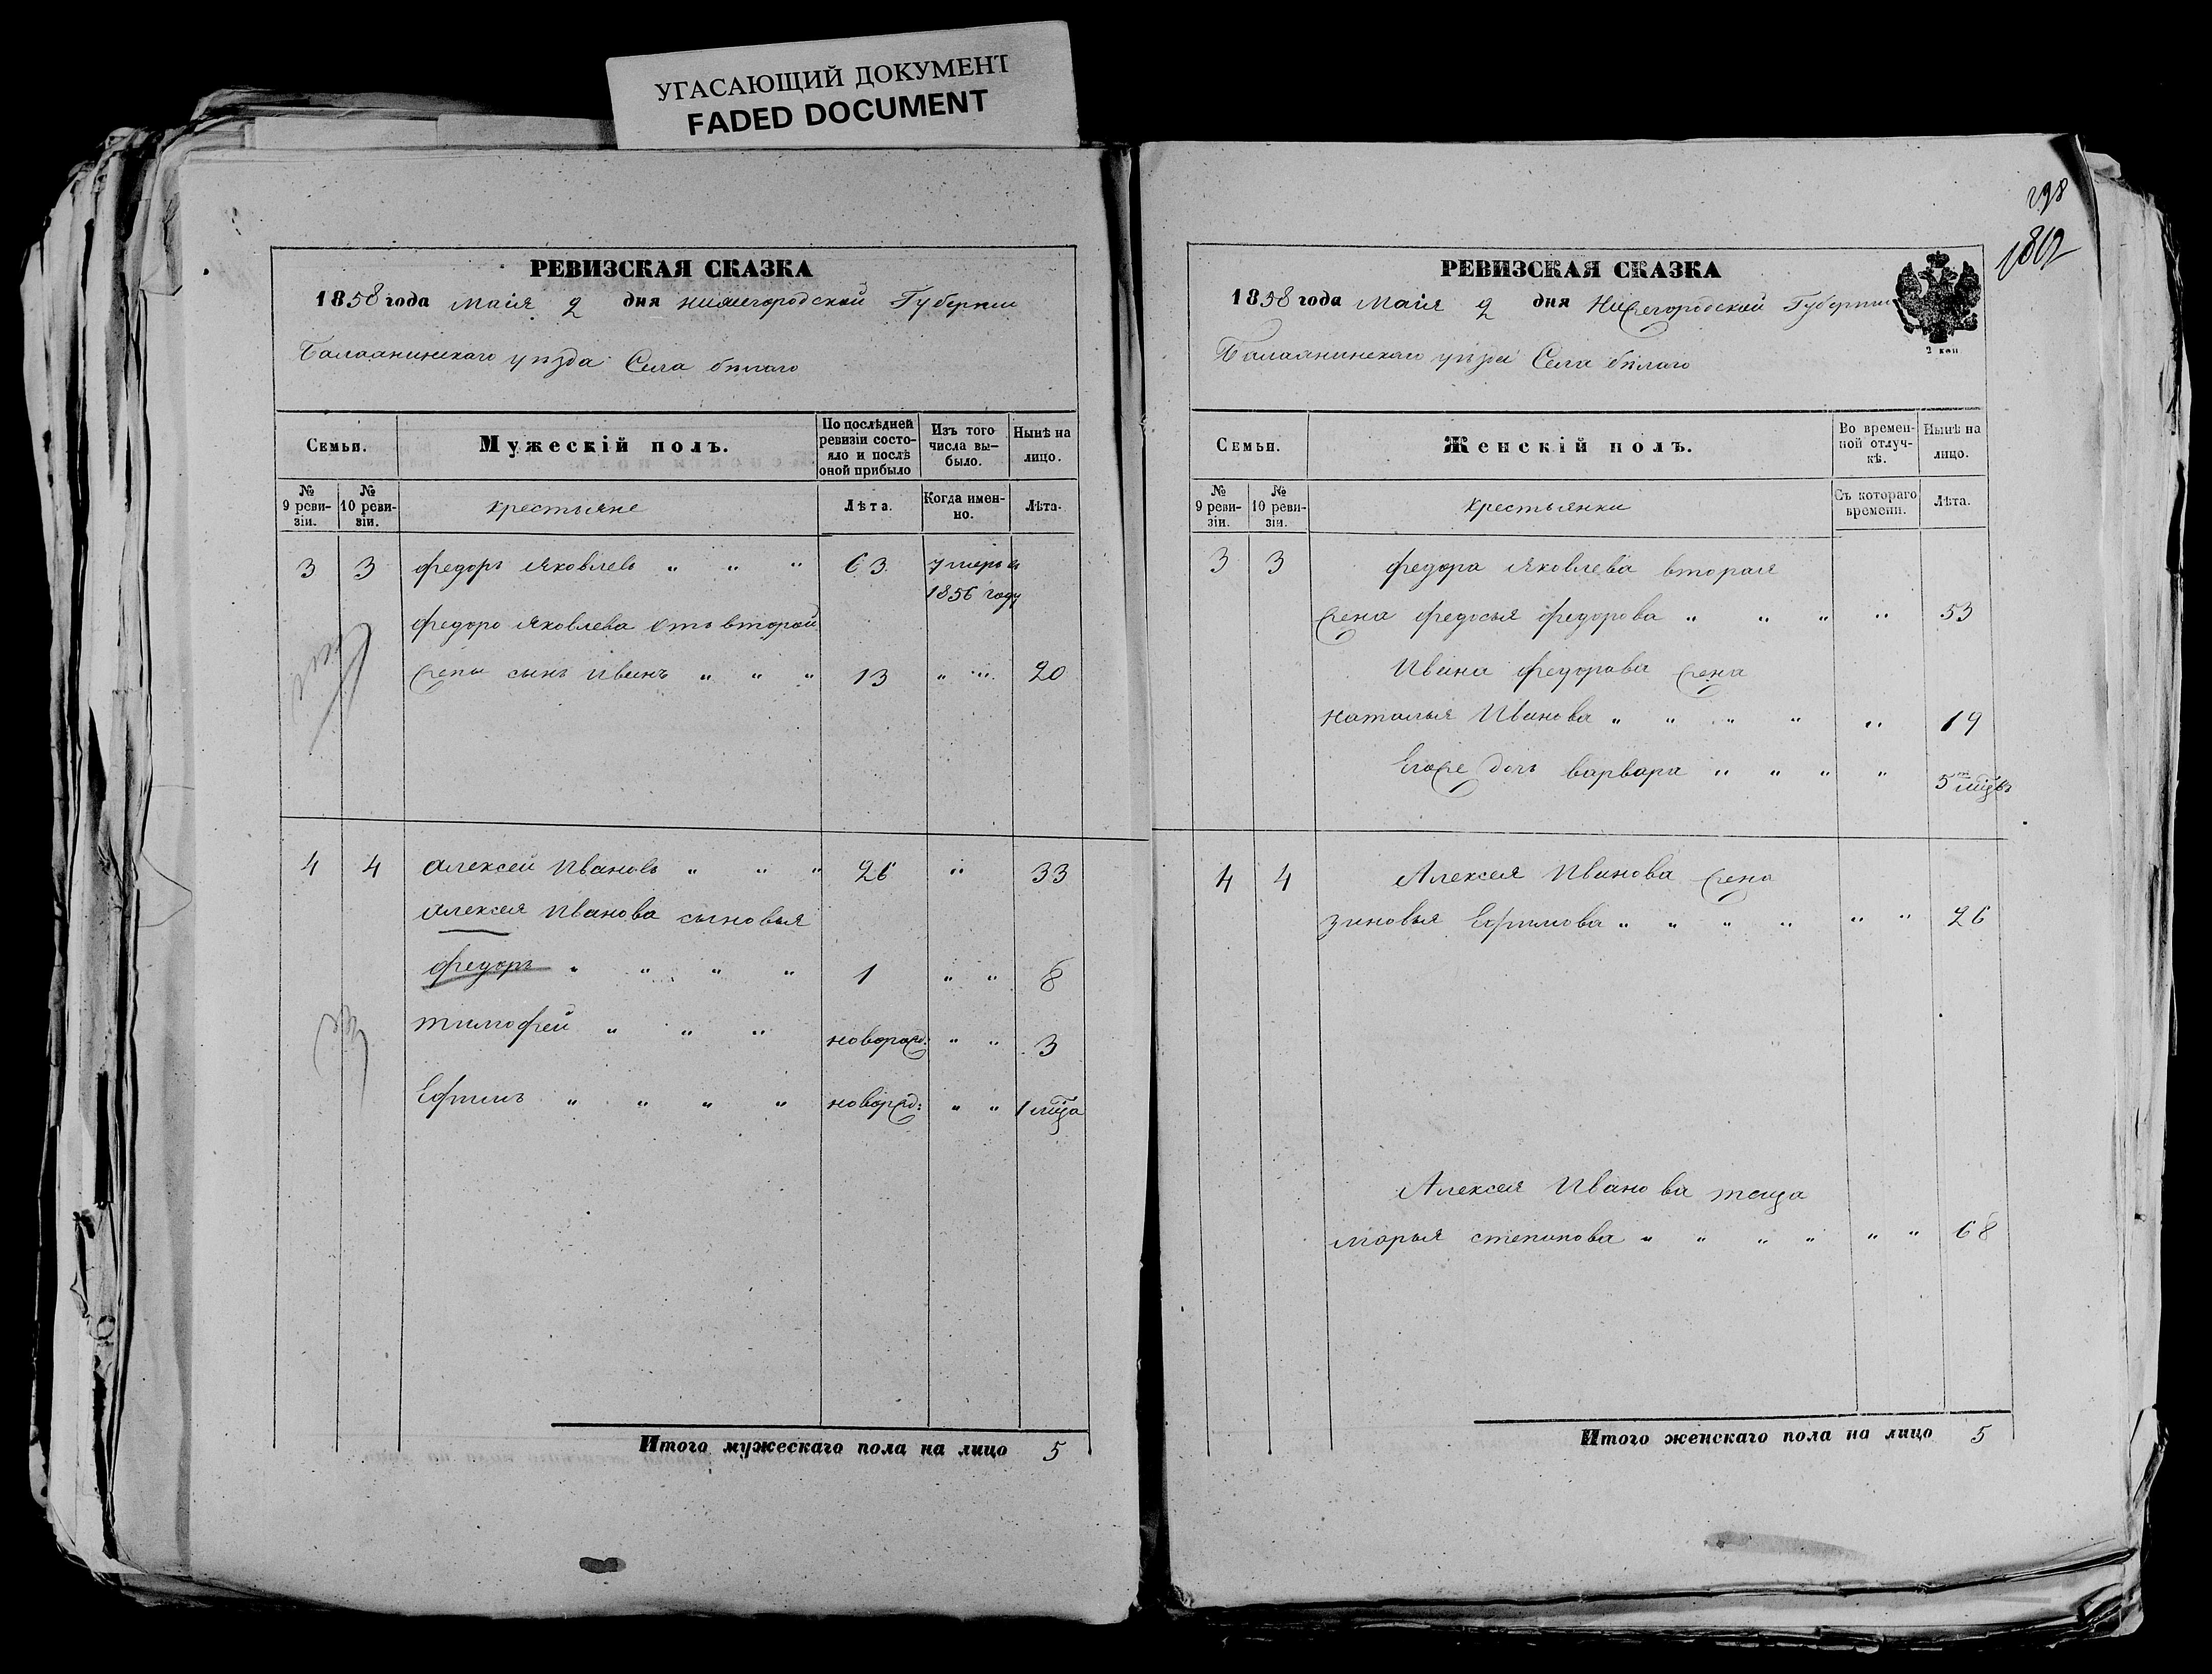 УГАСАЮЩИЙ ДОКУМЕНТ
FADED DOCUMENT
РЕВИЗСКАЯ СКАЗКА
1858 года маія 2 дня нижегородской Губерніи
Балахнинскаго уѣзда Села бѣлаго
Семьи. Мужескій полъ. По послѣдней ревизіи состояло и послѣ оной прибыло Изъ того числа вы-было. Нынѣ на лицо.
№ 9 реви-зіи. № 10 реви-зіи. крестьяне Лѣта. Когда имен-но. Лѣта.
3 3 федоръ яковлевъ " " " 63 умеръ въ
1856 году
федора яковлева отъ второй
жены сынъ иванъ " " " 13 " " 20
4 4 алексей Ивановъ " " " 26 " 33
алексея Иванова сыновья
федоръ " " " " 1 " " 8
тимофей " " " новорож: " " 3
Ефимъ " " " " новорож: " " 1 мѣсца
Итого мужескаго пола на лицо 5
298
РЕВИЗСКАЯ СКАЗКА
1858 года маія 2 дня Нижегородской Губерніи
2 коп
Балахнинскаго уѣзда Села бѣлаго
Семьи. Женскій полъ. Во времен-ной отлуч-кѣ. Нынѣ на лицо.
№ 9 реви-зіи. № 10 реви-зіи. крестьянки Съ котораго времени. Лѣта.
3 3 федора яковлева вторая
жена федосья федорова " " " " 53
Ивана федорова жена
наталья Иванова " " " " " 19
Егоже дочь варвара " " " " 5 мѣсцвъ
4 4 Алексея Иванова жена
зиновья Ефимова " " " " " " 26
Алексея Иванова теща
марья степанова " " " " " " 68
Итого женскаго пола на лицо 5